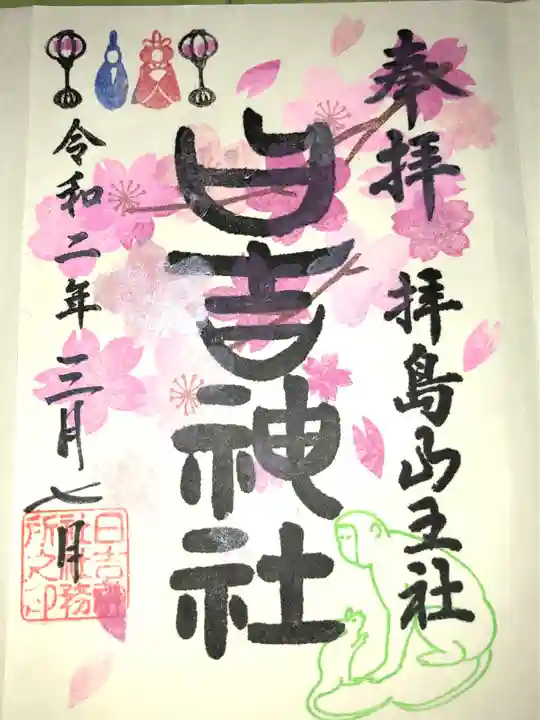 奉拝
拝島山王社
日吉神社
令和二年三月七日
日吉神
社社務
所之印